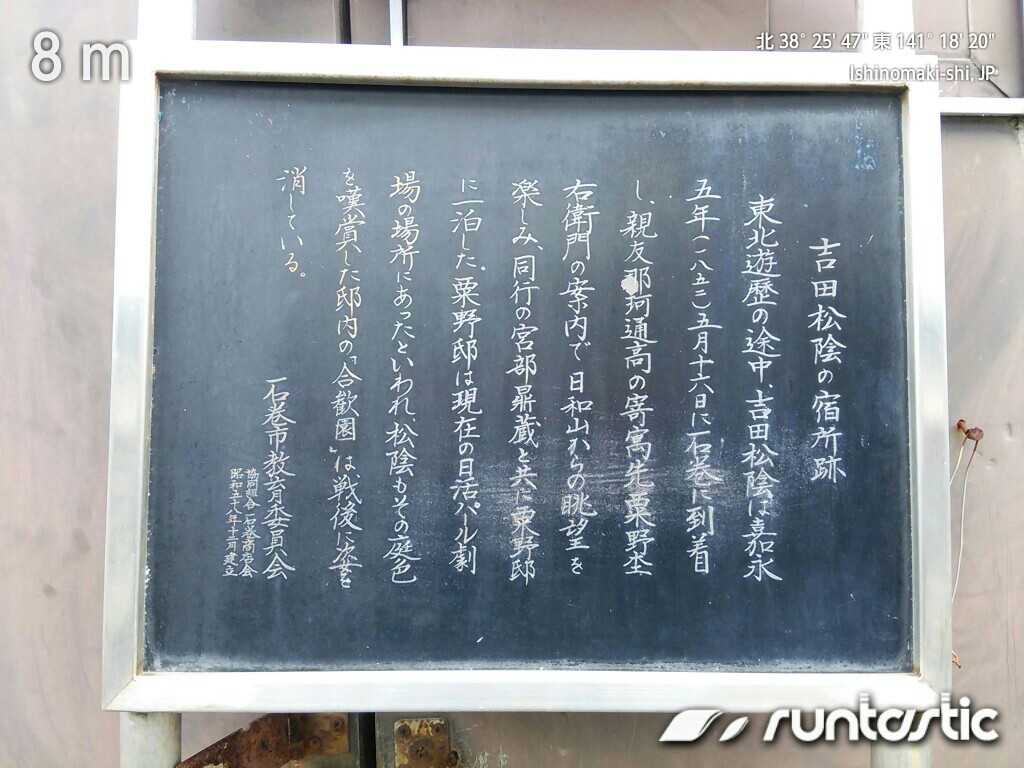 8 m
北 38° 25' 47" 東 141° 18' 20"
Ishinomaki-shi, JP
吉田松陰の宿所跡
東北遊歴の途中、吉田松陰は嘉永
五年(一八五二)五月十六日に石巻に到着
し、親友那珂通高の寄寓先粟野杢
右衛門の案内で日和山からの眺望を
楽しみ、同行の宮部鼎蔵と共に粟野邸
に一泊した。粟野邸は現在の日活パール劇
場の場所にあったといわれ、松陰もその庭色
を嘆賞した邸内の「合歓園」は戦後に姿を
消している。
石巻市教育委員会
協同組合 石巻商店会
昭和五十八年十二月建立
runtastic